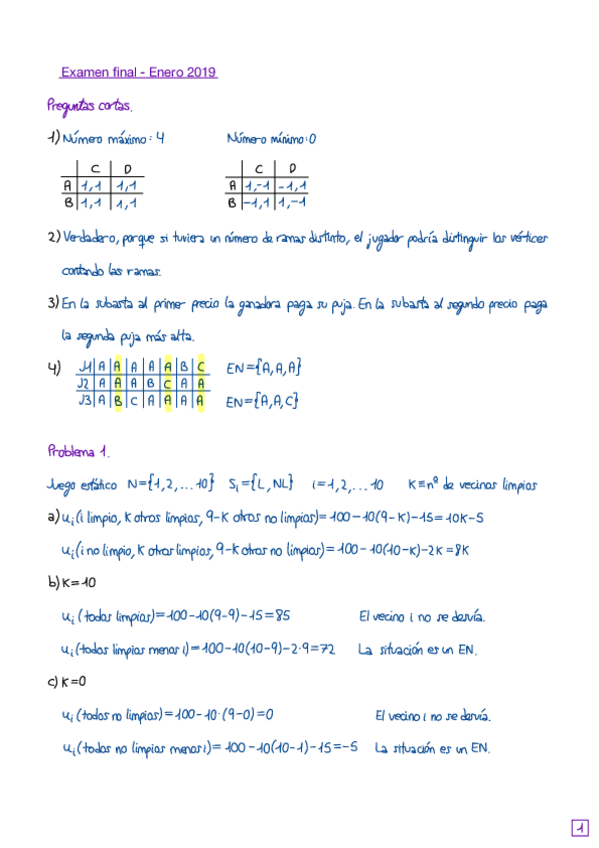 Examen final - Enero 2019
Preguntas cortas.
1) Número máximo: 4 Número mínimo: 0
C D C D
A 1,1 1,1 A 1,-1 -1,1
B 1,1 1,1 B -1,1 1,-1
2) Verdadero, porque si tuviera un número de ramas distinto, el jugador podría distinguir los vértices
contando las ramas.
3) En la subasta al primer precio la ganadora paga su puja. En la subasta al segundo precio paga
la segunda puja más alta.
4) J1 A A A A A B C EN={A,A,A}
J2 A A A B C A A
J3 A B C A A A A EN={A,A,C}
Problema 1.
Juego estático N={1,2,...10} Si={L,NL} i=1,2,...10 K≡nº de vecinos limpios
a) ui(i limpio, K otros limpios, 9-K otros no limpios)=100-10(9-K)-15=10K-5
ui(i no limpio, K otros limpios, 9-K otros no limpios)=100-10(10-K)-2K=8K
b) K=10
ui(todos limpios)=100-10(9-9)-15=85 El vecino i no se desvía.
ui(todos limpios menos i)=100-10(10-9)-2·9=72 La situación es un EN.
c) K=0
ui(todos no limpios)=100-10·(9-0)=0 El vecino i no se desvía.
ui(todos no limpios menos i)=100-10(10-1)-15=-5 La situación es un EN.
1